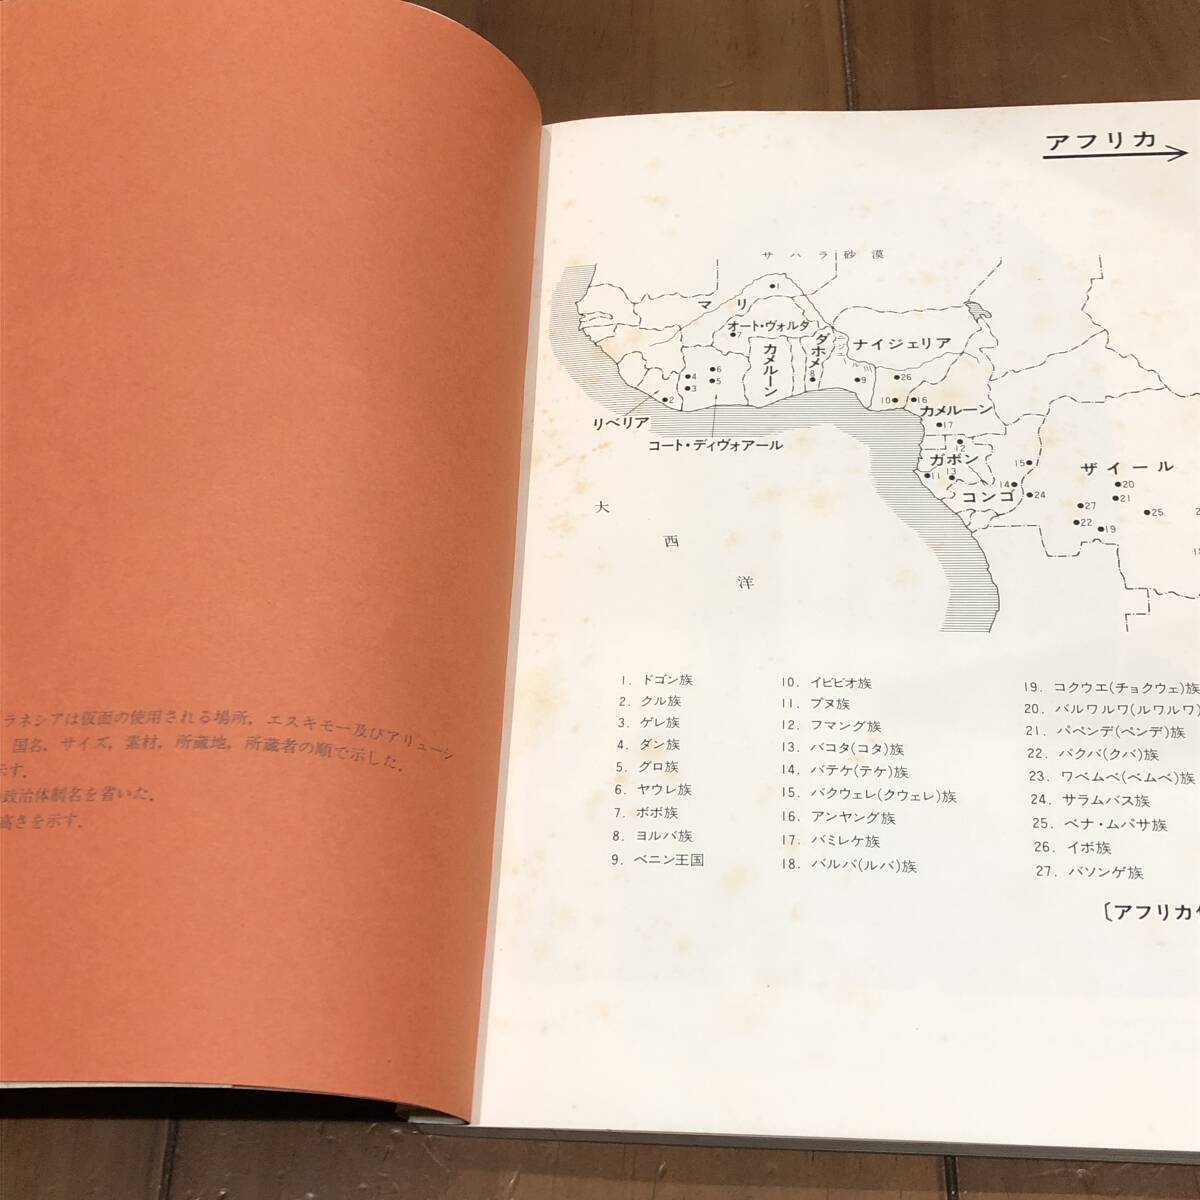 ラネシアは仮面の使用される場所，エスキモー及びアリューシ
国名，サイズ，素材，所蔵地，所蔵者の順で示した．
示す．
政治体制名を省いた．
高さを示す．
アフリカ
サハラ砂漠
マリ
オート・ヴォルタ
カメルーン
ダホメ
ニジェール川
ナイジェリア
リベリア
コート・ディヴォアール
カメルーン
ガボン
コンゴ
ザイール
大西洋
1
7
6
4
5
3
2
8
9
26
10
16
17
12
15
13
11
14
24
20
21
27
25
22
19
1. ドゴン族
2. クル族
3. ゲレ族
4. ダン族
5. グロ族
6. ヤウレ族
7. ボボ族
8. ヨルバ族
9. ベニン王国
10. イビビオ族
11. プヌ族
12. フマング族
13. バコタ(コタ)族
14. バテケ(テケ)族
15. バクウェレ(クウェレ)族
16. アンヤング族
17. バミレケ族
18. バルバ(ルバ)族
19. コクウエ(チョクウェ)族
20. バルワルワ(ルワルワ)
21. バペンデ(ペンデ)族
22. バクバ(クバ)族
23. ワベムベ(ベムベ)族
24. サラムパス族
25. ベナ・ムパサ族
26. イボ族
27. バソンゲ族
〔アフリカ